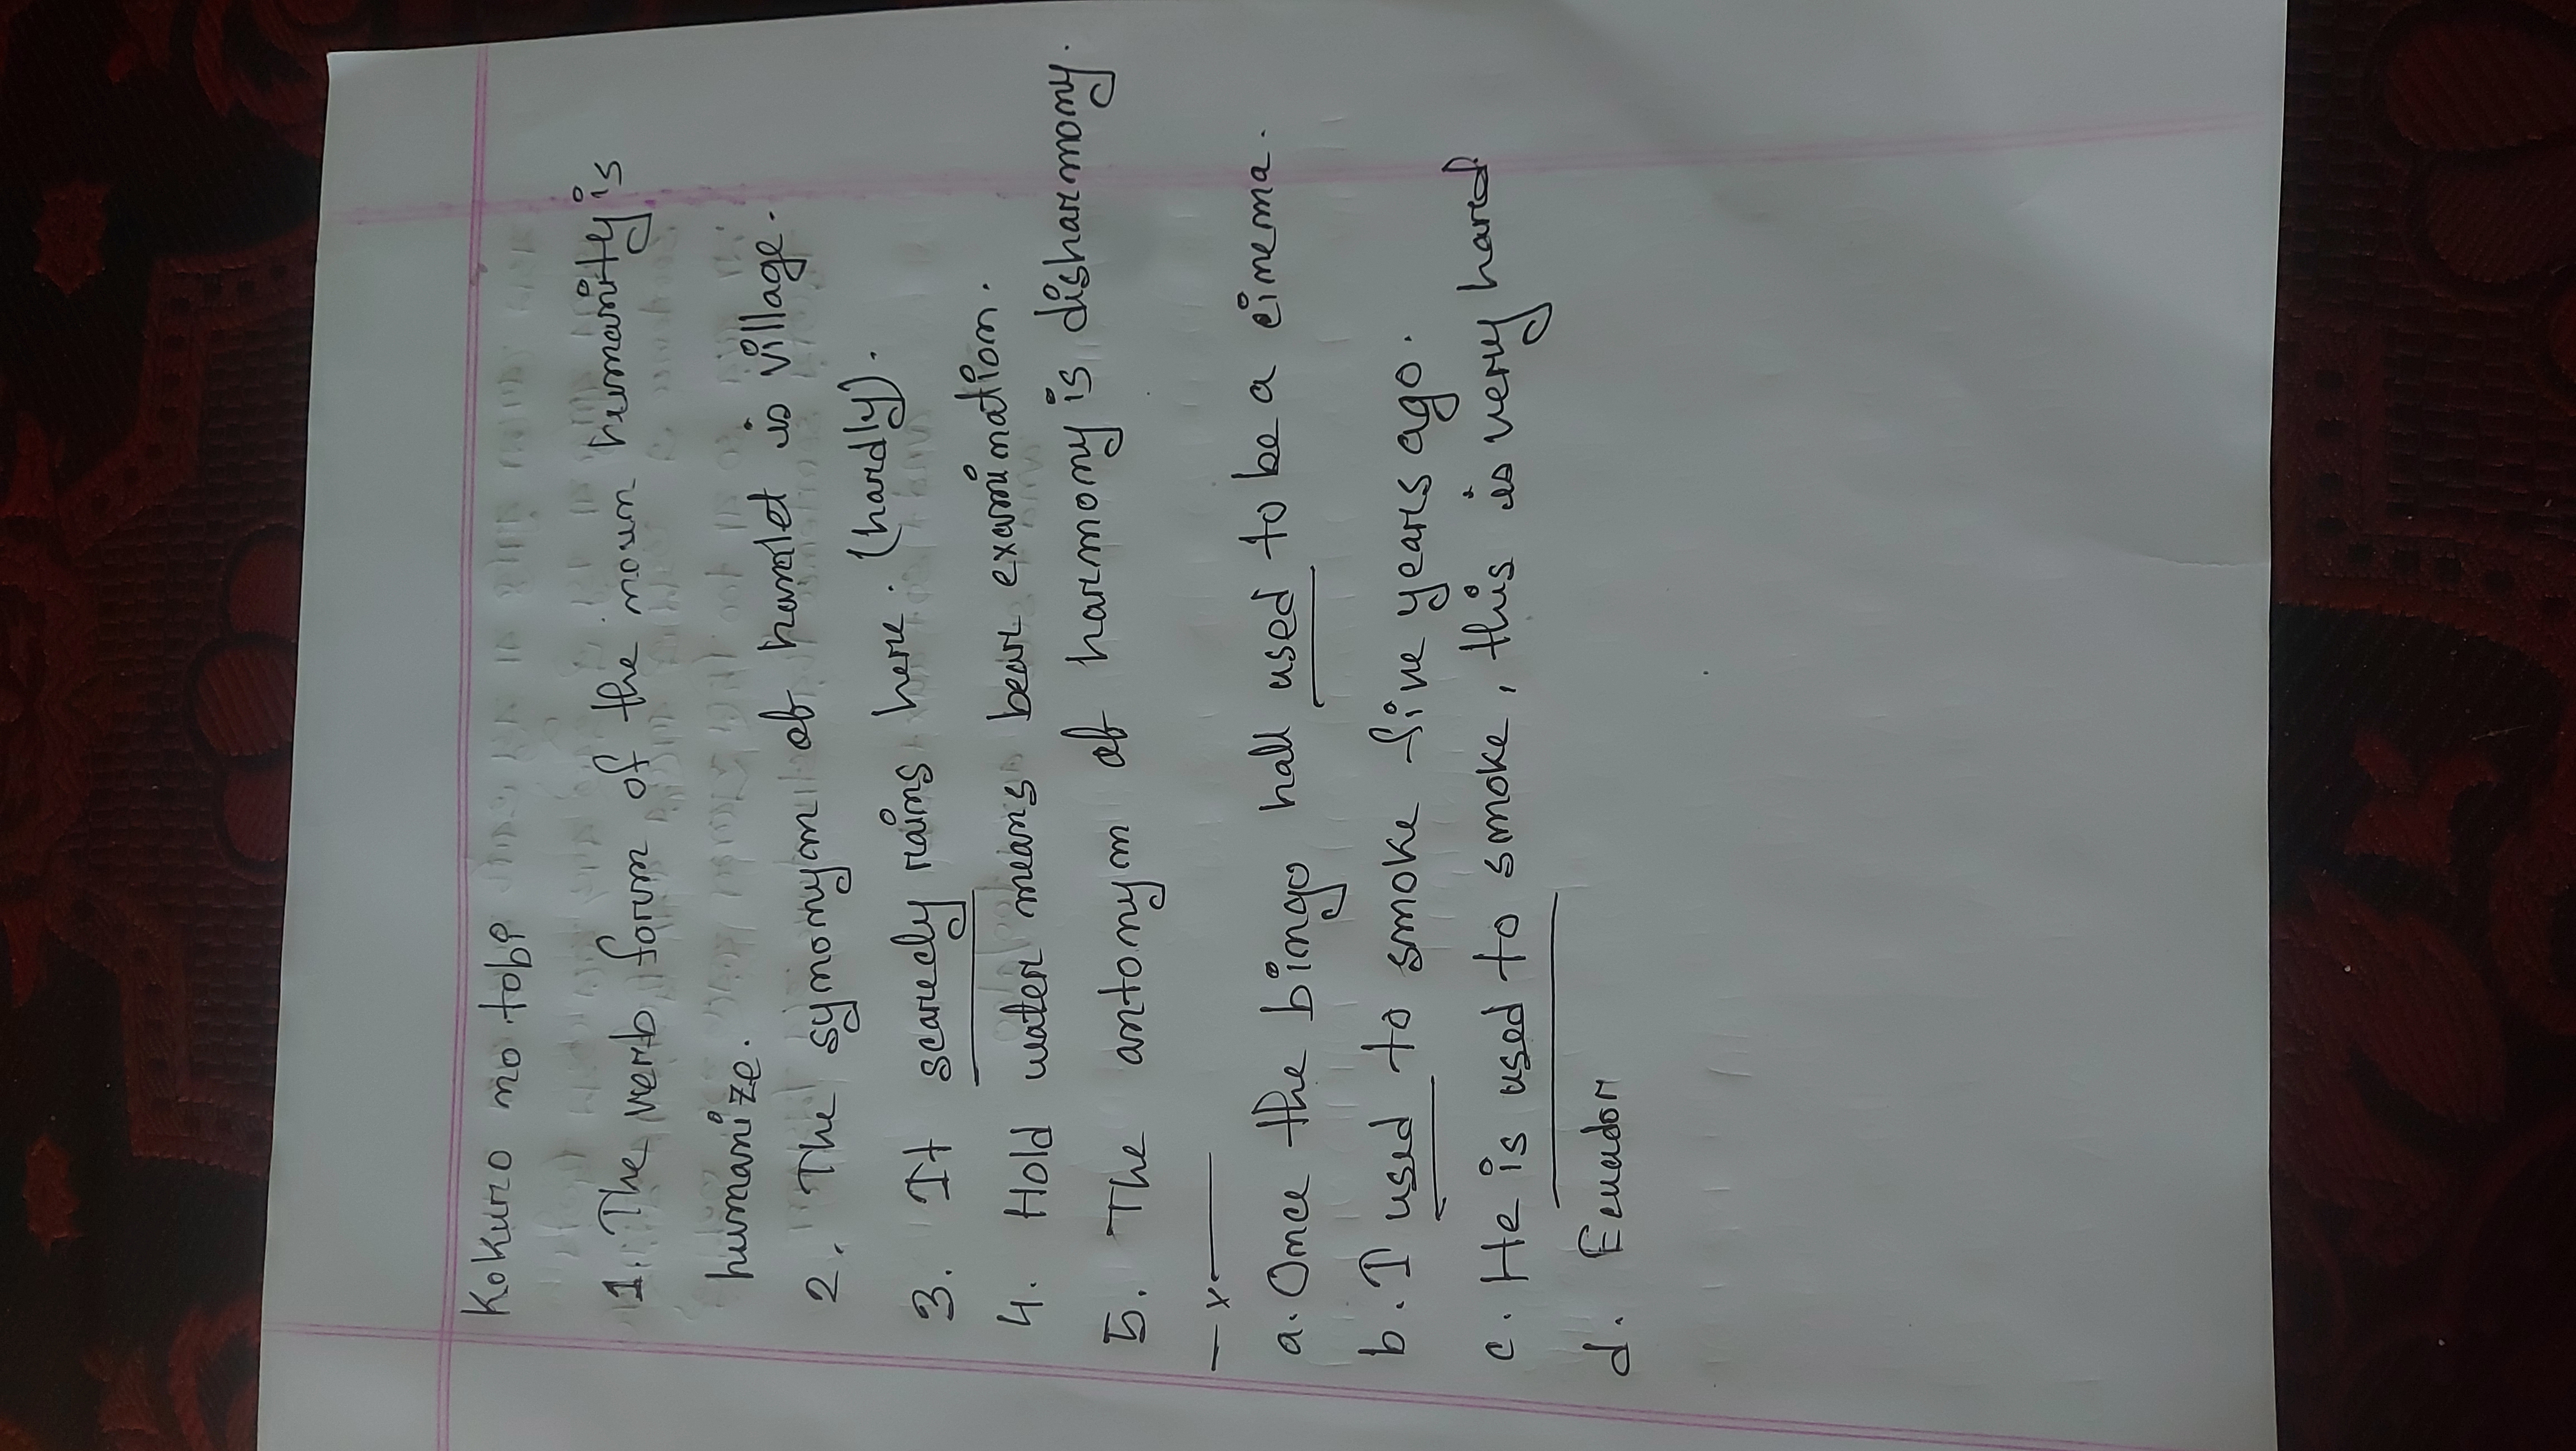 Kokuro no tobe
1. The verb form of the noun humanity is
humanize.
2. The synonym of hamlet is village.
3. It scarcely rains here. (hardly).
4. Hold water means bear examination.
5. The antonym of harmony is disharmony.
— x ——
a. Once the bingo hall used to be a cinema.
b. I used to smoke five years ago.
c. He is used to smoke, this is very hard
d. Ecuador